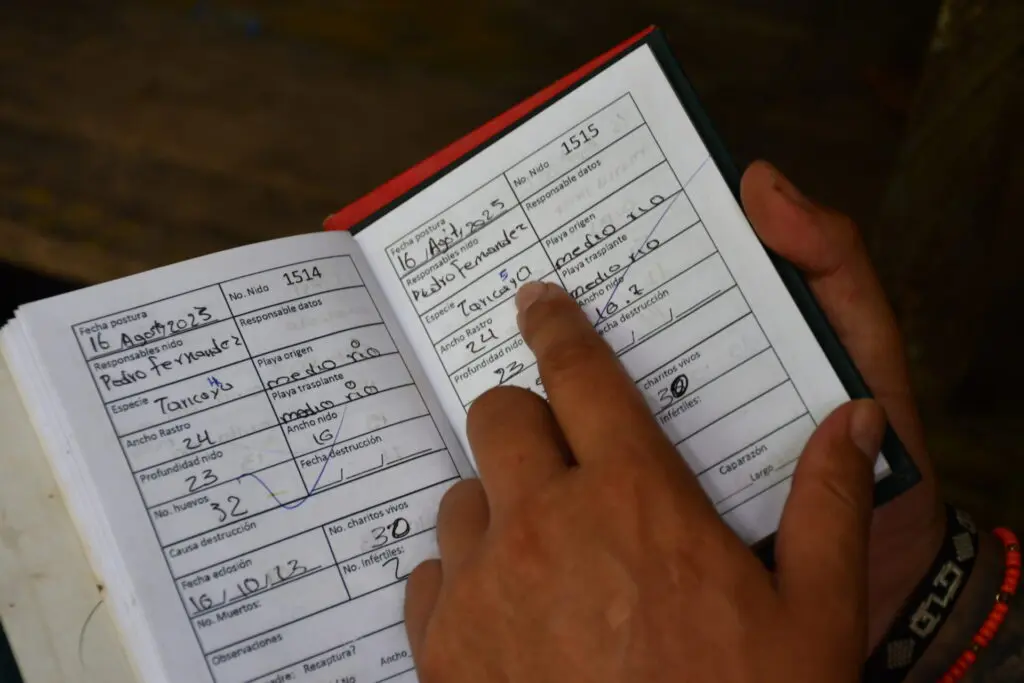 Fecha postura
16 Agost, 2023
No. Nido 1514
Responsables nido
Pedro Fernandez
Responsable datos
Especie Taricaya
4
Playa origen
medio rio
Ancho Rastro
24
Playa trasplante
medio rio
Profundidad nido
23
Ancho nido
16
No. huevos
32
Fecha destrucción
_/_/_
Causa destrucción
Fecha eclosión
16/10/23
No. charitos vivos
30
No. Muertos:
No. Infértiles:
2
Observaciones
Recaptura?
Ancho
Fecha postura
16 Agot, 2023
No. Nido 1515
Responsables nido
Pedro Fernandez
Responsable datos
Especie Taricaya
5
Playa origen
medio rio
Ancho Rastro
24
Playa trasplante
medio rio
Profundidad nido
23
Ancho nido
destrucción
_/_/_
charitos vivos
30
Infértiles:
Caparazón
Largo